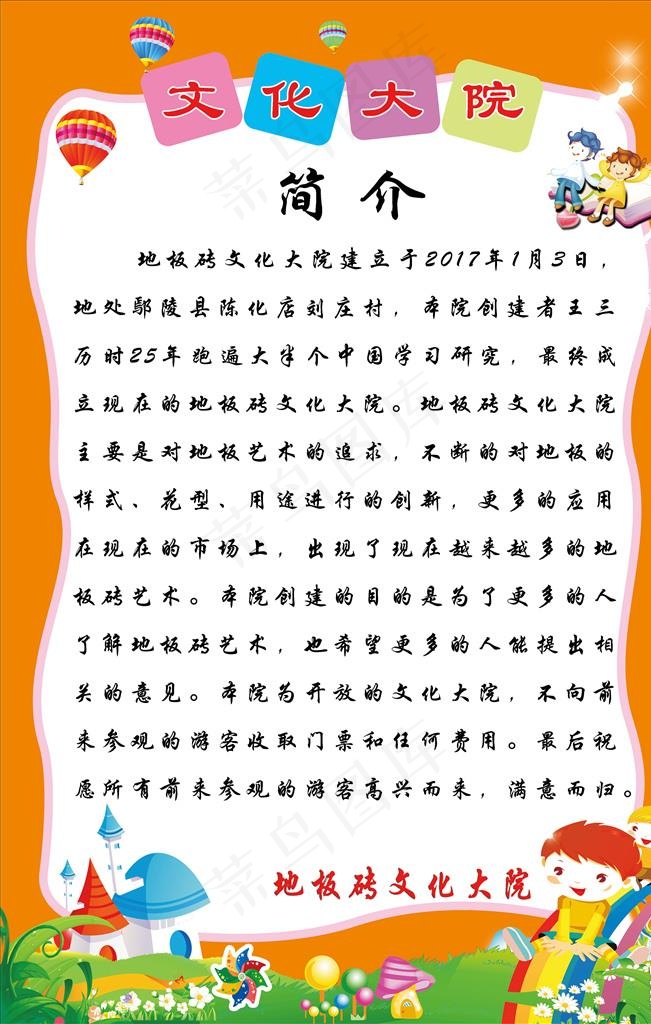 文化大院
简介
地板砖文化大院建立于2017年1月3日，
地处鄢陵县陈化店刘庄村，本院创建者王三
历时25年跑遍大半个中国学习研究，最终成
立现在的地板砖文化大院。地板砖文化大院
主要是对地板艺术的追求，不断的对地板的
样式、花型、用途进行的创新，更多的应用
在现在的市场上，出现了现在越来越多的地
板砖艺术。本院创建的目的是为了更多的人
了解地板砖艺术，也希望更多的人能提出相
关的意见。本院为开放的文化大院，不向前
来参观的游客收取门票和任何费用。最后祝
愿所有前来参观的游客高兴而来，满意而归。
地板砖文化大院
菜鸟图库
菜鸟图库
菜鸟图库